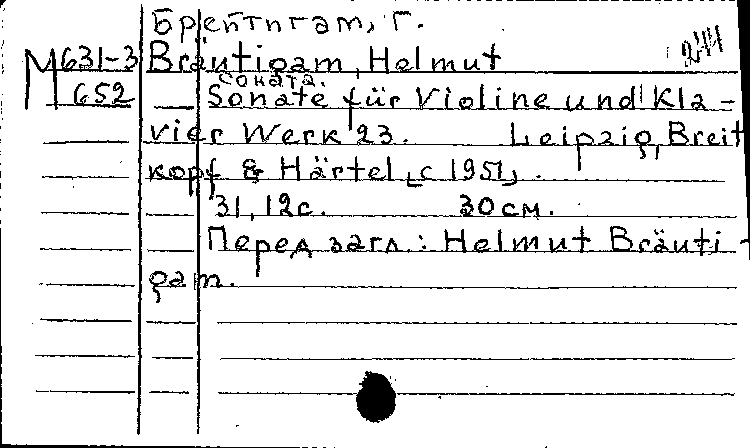 Брейтигам, Г.
М 631-3 Bräutigam, Helmut
652
Соната.
Sonate für Violine und Kla-
vier Werk 23. Leipzig, Breit
kopf & Härtel, [c 1951].
31, 12 с. 30 см.
Перед загл.: Helmut Bräuti-
gam.